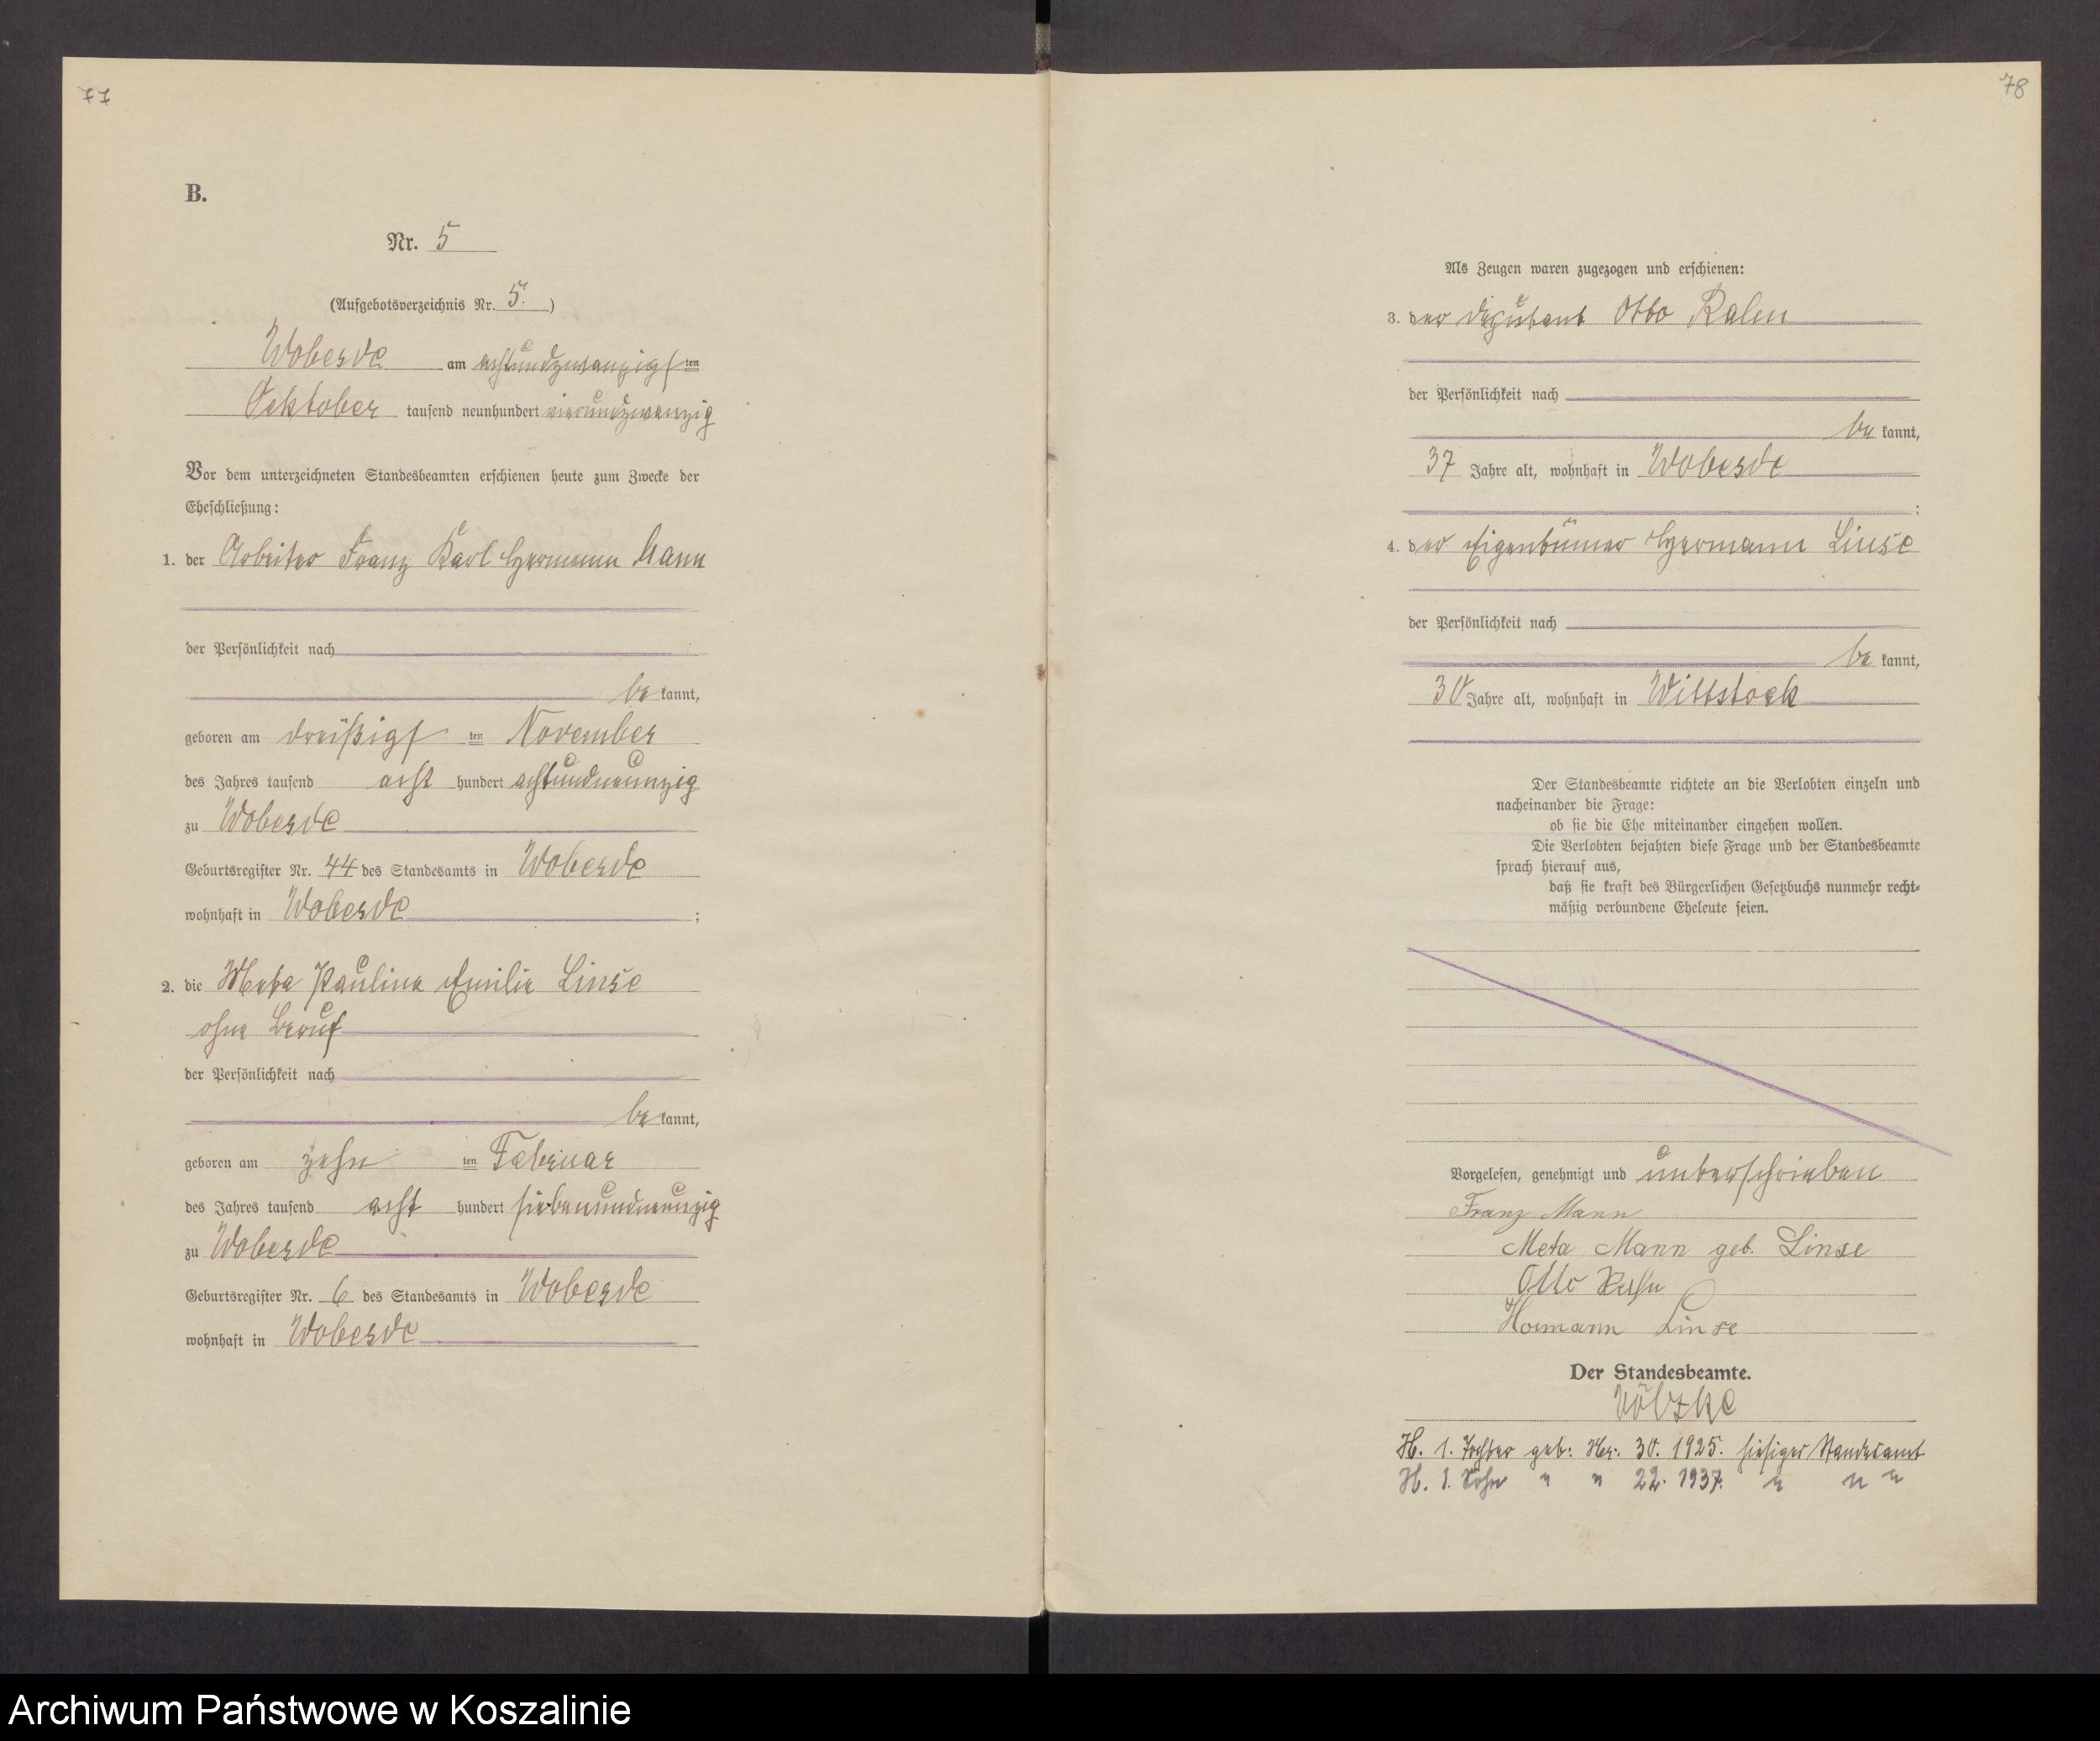 77
B.
Nr. 5
(Aufgebotsverzeichnis Nr. 5.)
Wobesde am achtundzwanzigsten
Oektober tausend neunhundert vierundzwanzig
Vor dem unterzeichneten Standesbeamten erschienen heute zum Zwecke der
Eheschließung:
1. der Arbeiter Franz Karl Hermann Mann
der Persönlichkeit nach
be kannt,
geboren am dreißigsten November
des Jahres tausend acht hundert achtundneunzig
zu Wobesde
Geburtsregister Nr. 44 des Standesamts in Wobesde
wohnhaft in Wobesde ;
2. die Meta Pauline Emilie Linse
ohne Beruf
der Persönlichkeit nach
be kannt,
geboren am zehn ten Februar
des Jahres tausend acht hundert siebenundneunzig
zu Wobesde
Geburtsregister Nr. 6 des Standesamts in Wobesde
wohnhaft in Wobesde
78
Als Zeugen waren zugezogen und erschienen:
3. der Deputant Otto
der Persönlichkeit nach
be kannt,
37 Jahre alt, wohnhaft in Wobesde
;
4. der Eigentümer Hermann Linse
der Persönlichkeit nach
be kannt,
30 Jahre alt, wohnhaft in Wittstock
Der Standesbeamte richtete an die Verlobten einzeln und
nacheinander die Frage:
ob sie die Ehe miteinander eingehen wollen.
Die Verlobten bejahten diese Frage und der Standesbeamte
sprach hierauf aus,
daß sie kraft des Bürgerlichen Gesetzbuchs nunmehr recht-
mäßig verbundene Eheleute seien.
Vorgelesen, genehmigt und unterschrieben
Franz Mann
Meta Mann geb. Linse
Otto
Hermann Linse
Der Standesbeamte.
Völzke
H. 1. Tochter geb: Nr: 30. 1925. hiesiger Standesamt
H. 1. Sohn " " 22. 1937. " " "
Archiwum Państwowe w Koszalinie